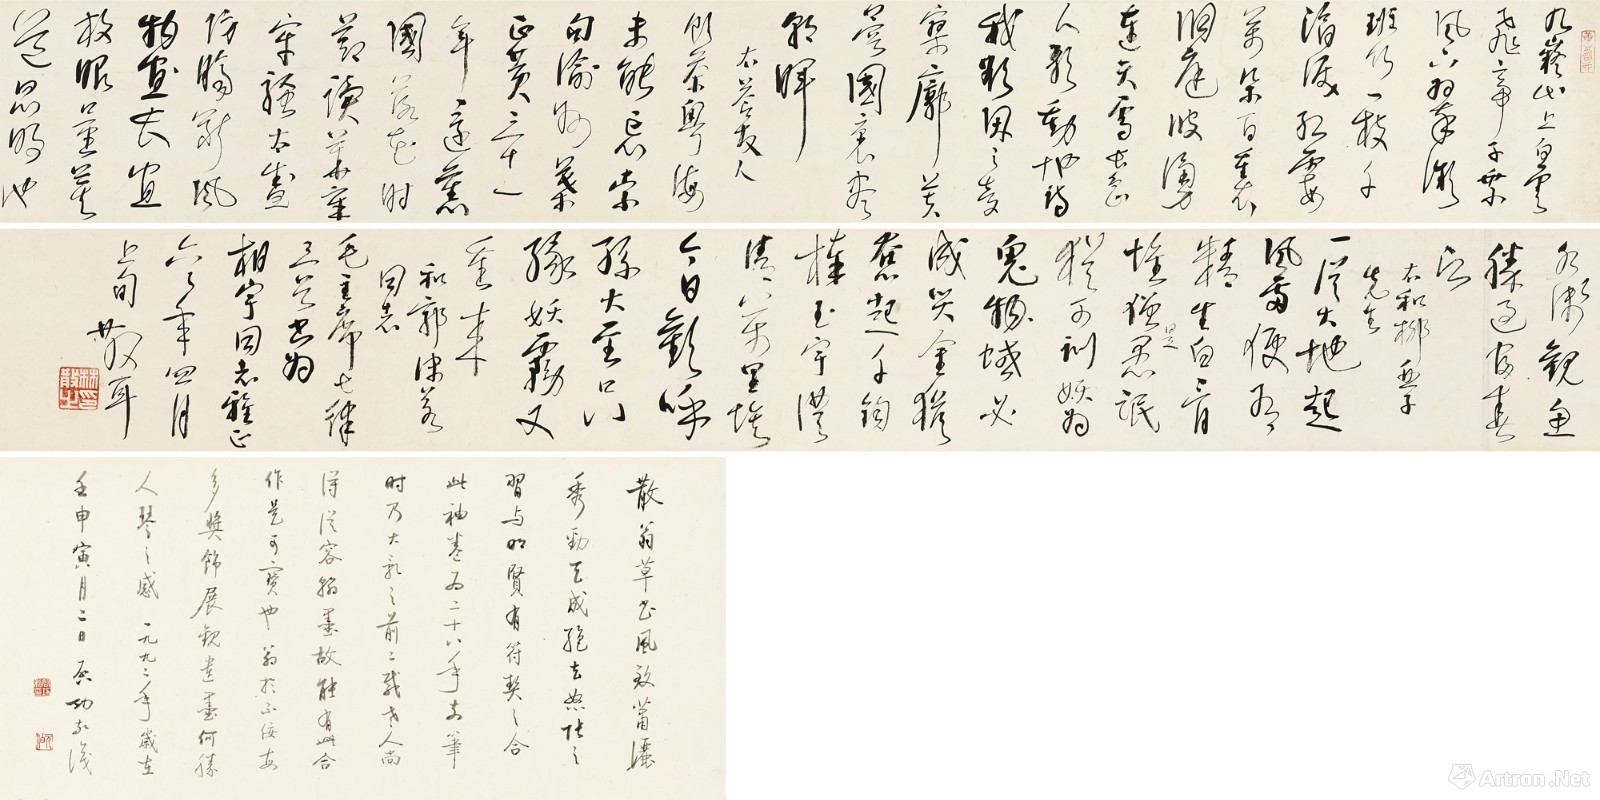 九嶷山上白雲
飛帝子乘
風下翠微
斑竹一枝千
滴淚紅霞
萬朵百重衣
洞庭波湧
連天雪長島
人歌動地詩
我欲因之夢
寥廓芙
蓉國裏盡
朝暉
右答友人
飲茶粵海
未能忘索
句渝州葉
正黃三十一
年還舊
國落花時
節讀華章
牢騷太盛
防腸斷風
物宜長宜
放眼量莫
道昆明池
水淺觀魚
勝過富春
江
右和柳亞子
先生
一從大地起
風雷便有
精生白骨
堆僧是愚氓
猶可訓妖為
鬼蜮必
成災金猴
奮起千鈞
棒玉宇澄
清萬里埃
今日歡呼
孫大聖只
緣妖霧又
重來
和郭沫若
同志
毛主席七律
三首書為
相宇同志雅正
六六年四月
上旬 散耳
散翁草書風致蕭灑
秀勁天成絕去怒張之
習與明賢有符契之合
此袖卷為二十六年前筆
時乃大亂之前二載老人尚
得從容翰墨故能有此合
作是可寶也翁於不佞每
多獎飾展觀遺墨何勝
人琴之感一九九二年歲在
壬申寅月二日啟功敬識
Artron.Net